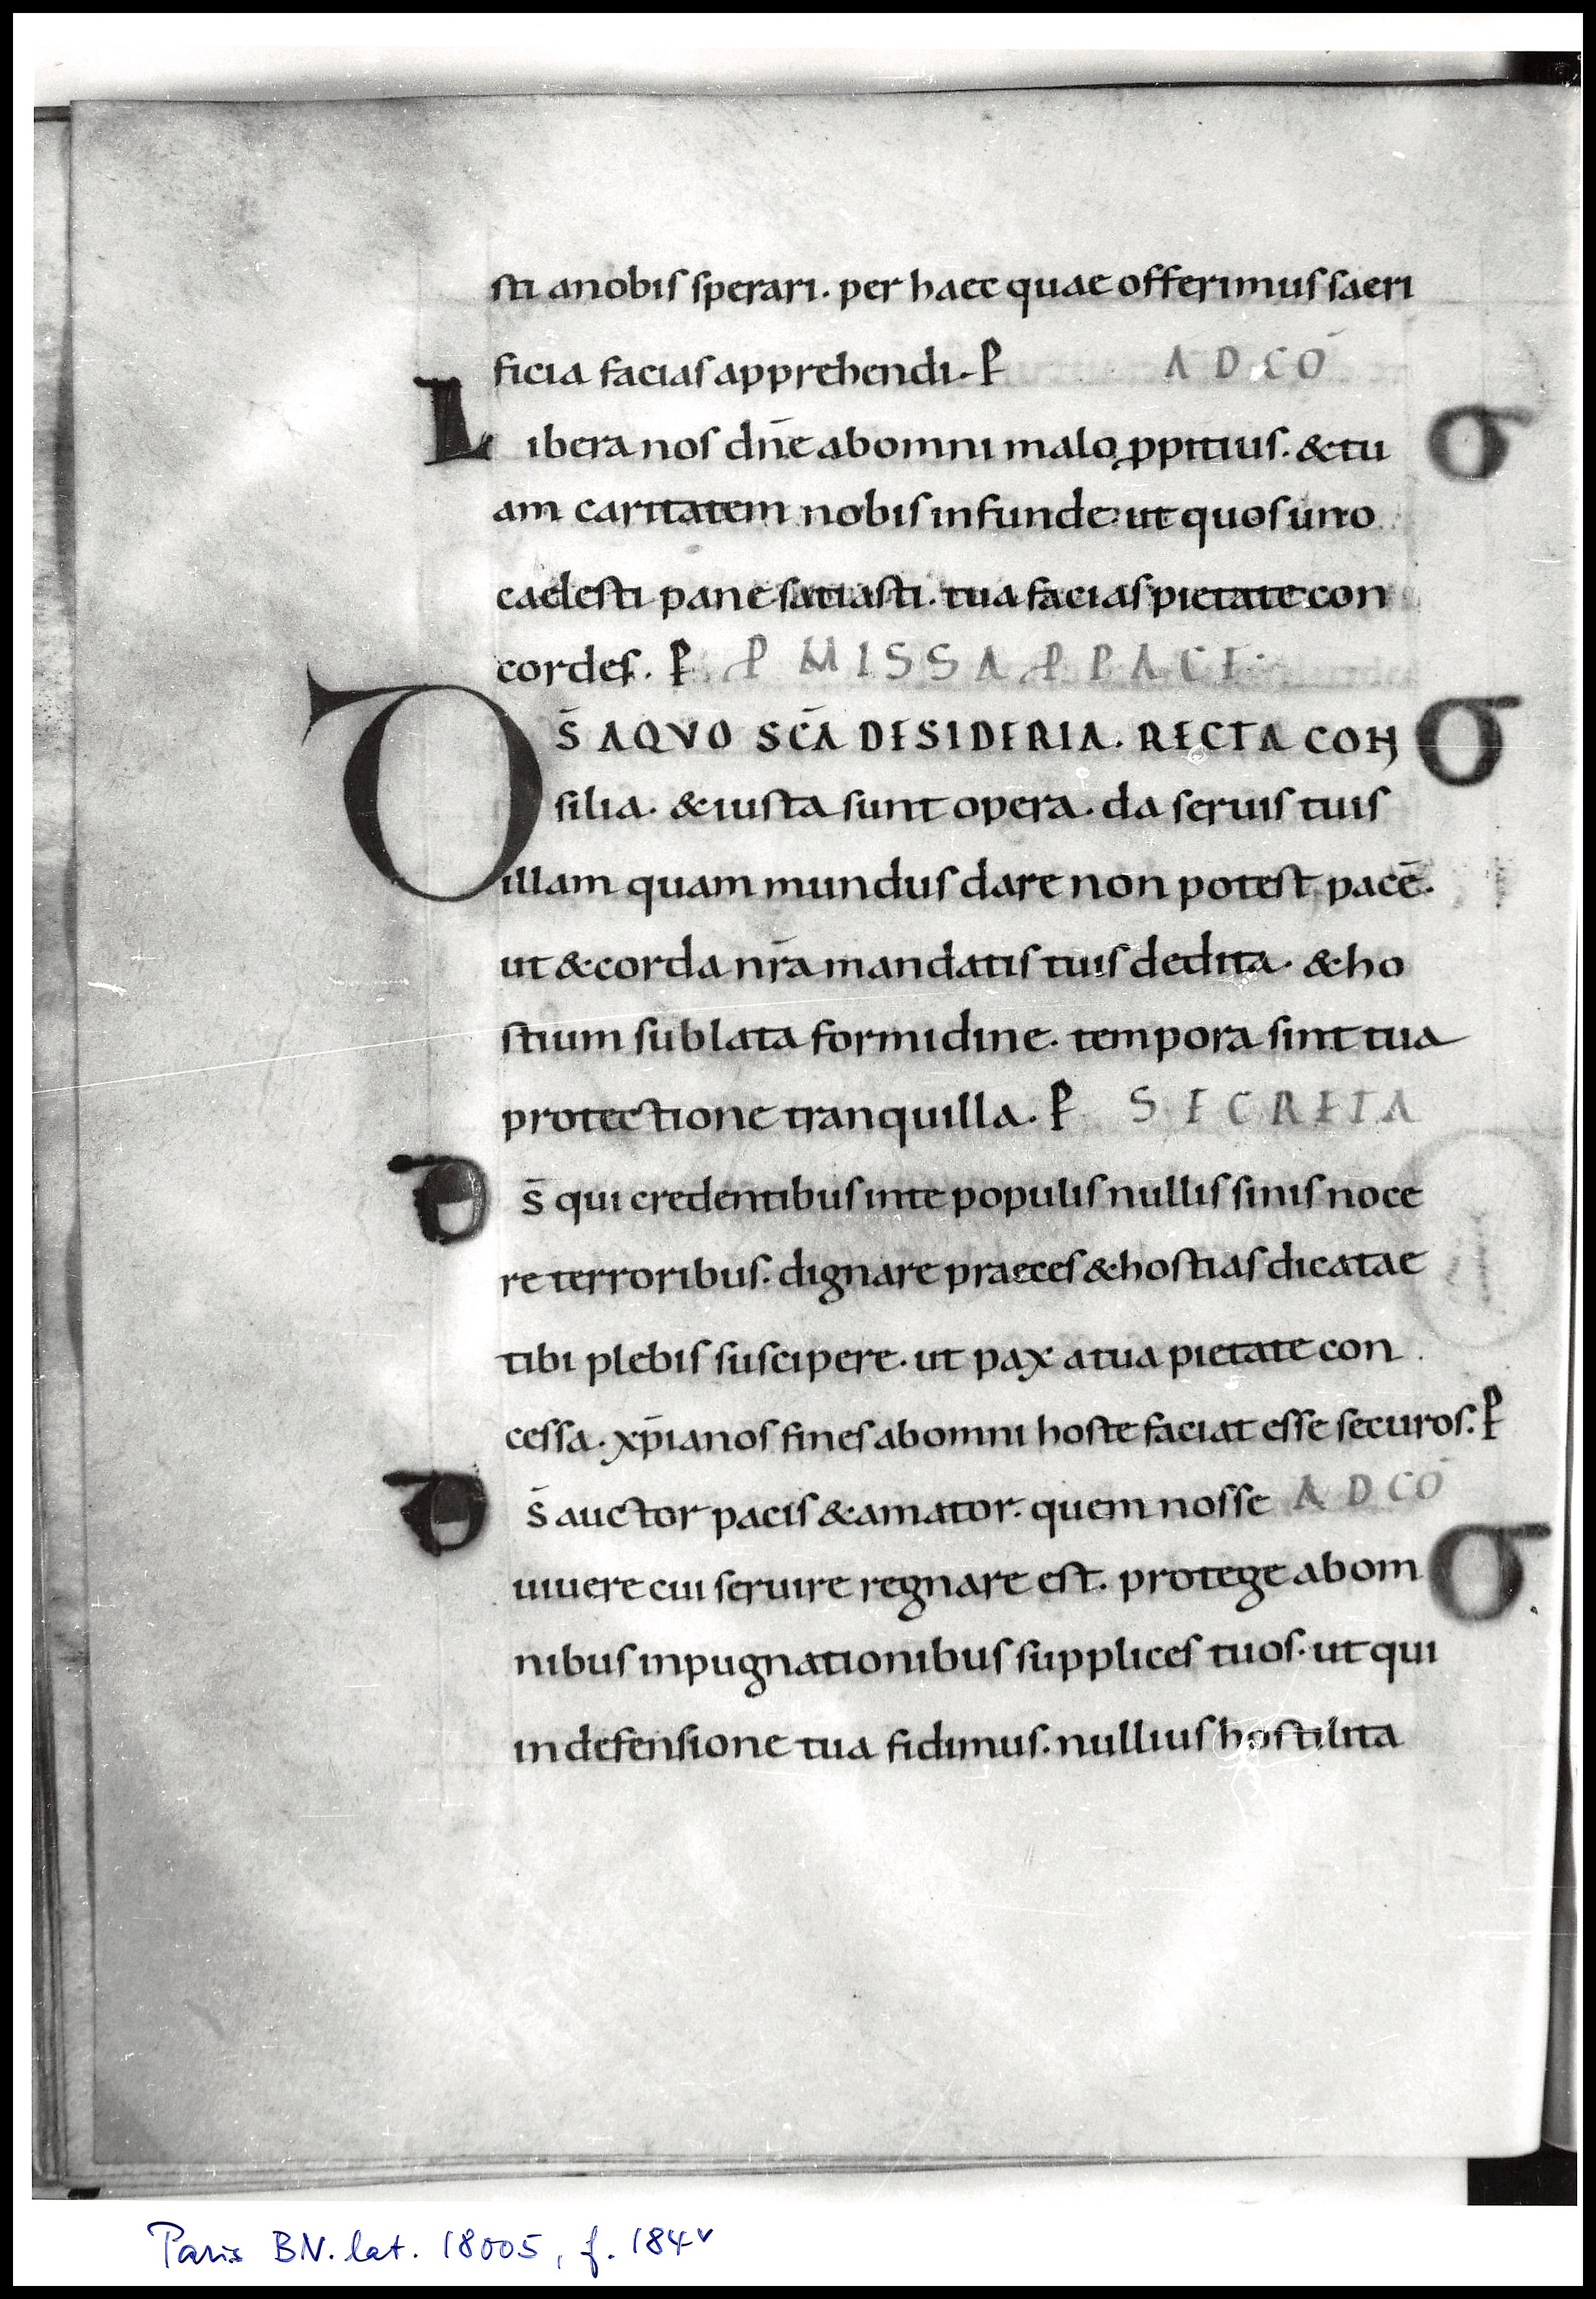 sti anobis sperari. per haec quae offerimus sacri
ficia facias apprehendi. P̵ AD CO̅
Libera nos dn̅e abomni malo ꝓpitius. & tu
am caritatem nobis infunde. ut quos uno
caelesti pane satiasti. tua facias pietate con
cordes. P̵ MISSA P PACE
DS̅ AQUO SCA̅ DESIDERIA. RECTA CON
silia. & iusta sunt opera. da seruis tuis
illam quam mundus dare non potest pace̅.
ut & corda nr̅a mandatis tuis dedita. & ho
stium sublata formidine. tempora sint tua
protectione tranquilla. P̵ SECRETA
Ds̅ qui credentibus inte populis nullis sinis noce
re terroribus. dignare praeces & hostias dicatae
tibi plebis suscipere. ut pax atua pietate con
cessa. xp̅ianos fines abomni hoste faciat esse securos. P̵
Ds̅ auctor pacis & amator. quem nosse AD CO̅
uiuere cui seruire regnare est. protege abom
nibus inpugnationibus supplices tuos. ut qui
indefensione tua fidimus. nullius hostilita
Paris BN. lat. 18005, f. 184v